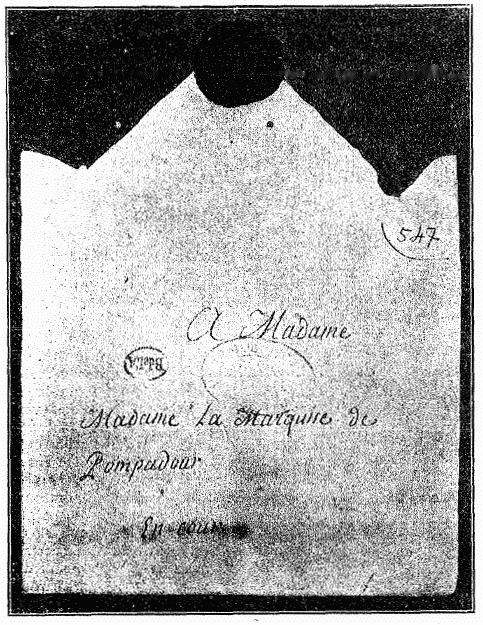 547
A Madame
Madame La Marquise de
Pompadour
En cour